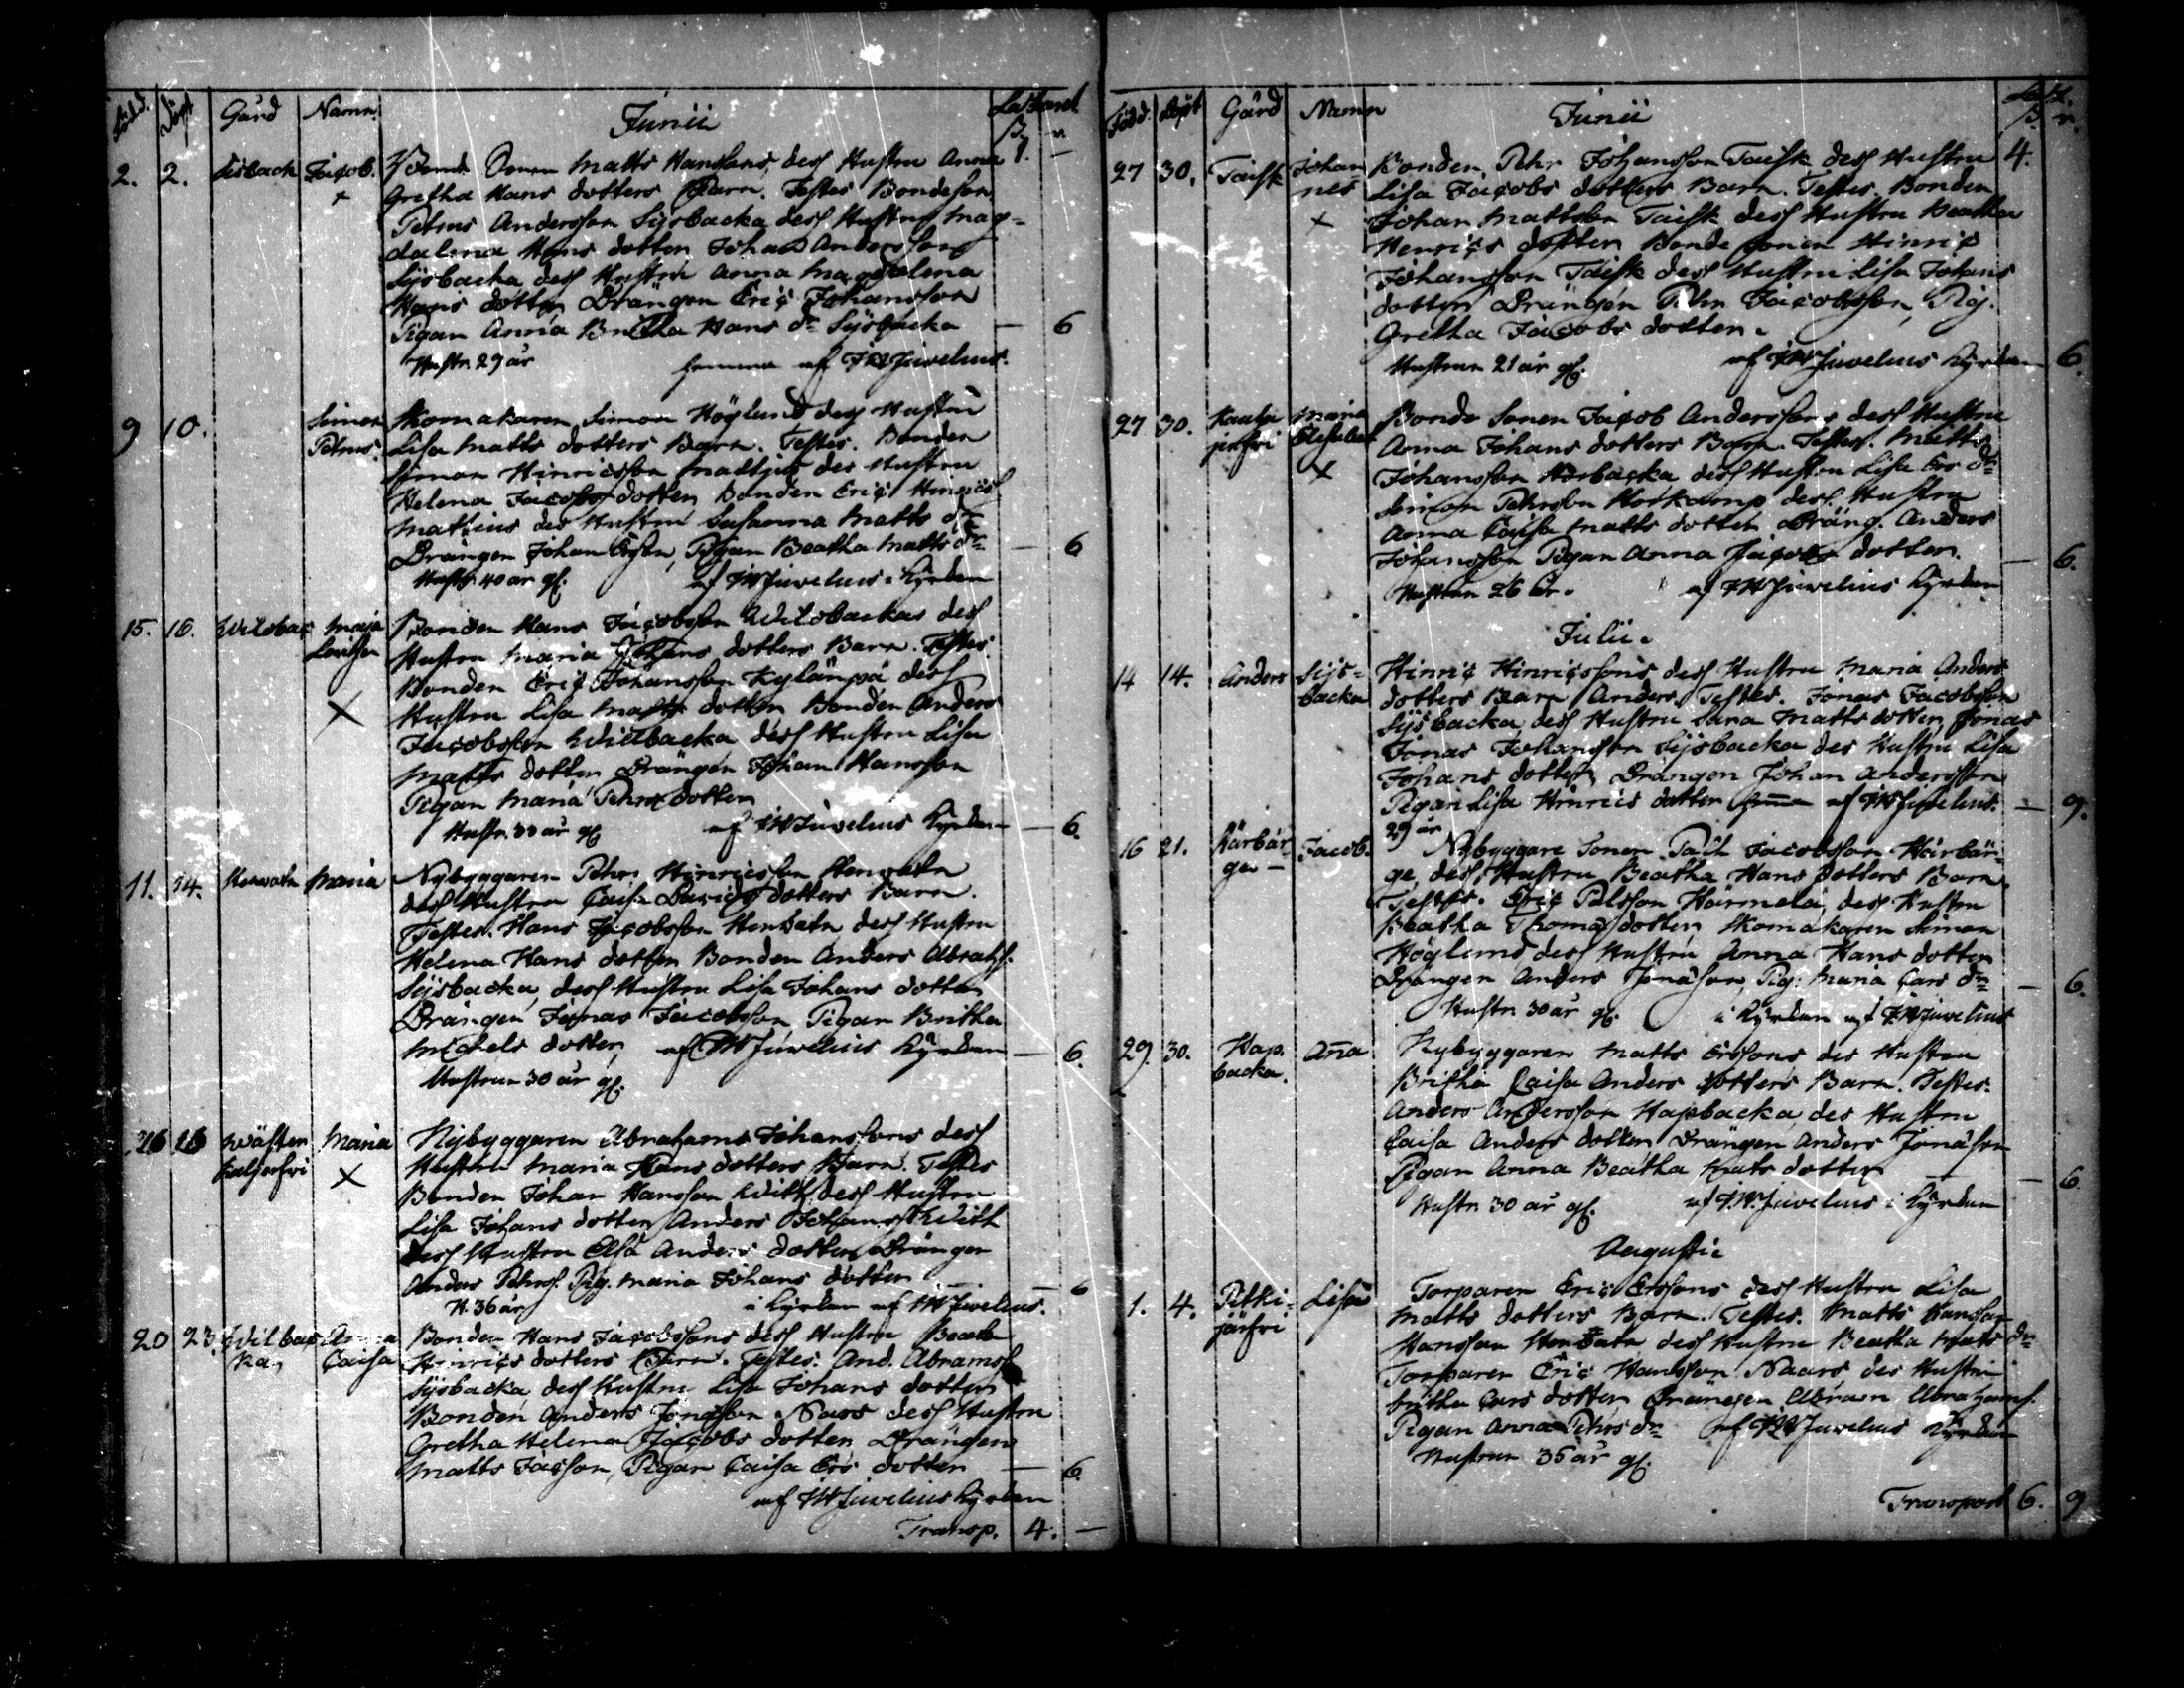 Född. Döpt Gård Namn Junii
2. 2. Sisback Jacob. Bonde Sonen Matts Hanssons, dess Hustru Anna 1. —
Gretha Hans dotters Barn. Testes Bondeson
Petrus Andersson Sysbacka dess Hustru Mag-
dalena Hans dotter Johan Andersson
Sysbacka dess Hustru Anna Magdalena
Hans dotter Drängen Eric Johansson
Pigan Anna Britha Hans dr Sysbacka — 6
Hustr. 29 år hemma af JW Juvelius.
9 10. Simon Skomakaren Simon Höglund dess Hustru
Petrus. Lisa Matts dotters Barn. Testes. Bonden
Simon Hinricsson des Hustru
Helena Jacobs dotter Bonden Eric Henricss
des Hustru Susanna Matts dr
Drängen Johan Ersson, Pigan Beatha Matts dr — 6
Hustr. 40 år gl. af JW Juvelius i Kyrkan
15. 16. Wildbac Maja Bonden Hans Jacobsson Wildbackas des
Lovisa Hustru Maria Johans dotters Barn. Testes
Bonden Eric Johansson Kylänpä dess
X Hustru Lisa Matts dotter Bonden Anders
Jacobsson Willbacka dess Hustru Lisa
Matts dotter Drängen Johan Hansson
Pigan Maria Pehrs dotter
Hustr. 33 år gl af JW Juvelius Kyrkan — 6.
11. 14. Maria Nybyggaren Pehr Hinricsson
dess Hustru Caisa Davids dotters Barn.
Testes. Hans Jacobsson dess Hustru
Helena Hans dotter Bonden Anders Abrahs.
Sysbacka, dess Hustru Lisa Johans dotter
Drängen Jonas Jacobsson, Pigan Britha
Michels dotter, af JW Juvelius Kyrkan — 6.
Hustrun 30 år gl.
16 16 Wästen Maria Nybyggaren Abrahams Johanssons dess
X Hustru Maria Hans dotters Barn. Testes
Bonden Johan Hansson Will dess Hustru
Lisa Johans dotter Anders Johanss Will
dess Hustru Elsa Anders dotter Drängen
Anders Pehrs. Pig. Maria Johans dotter — 6
H. 36 år i Kyrkan af JW Juvelius.
20 23. Willbac Anna Bonden Hans Jacobssons dess Hustru Beata
ka, Caisa Hinrics dotters Barn. Testes. And. Abramss
Sysbacka dess Hustru Lisa Johans dotter
Bonden Anders Jonasson Nars dess Hustru
Gretha Helena Jacobs dotter Drängen
Matts Jacsson, Pigan Caisa Ers dotter — 6.
af JW Juvelius Kyrkan
Transp. 4. —
Född Döpt Gård Namn Junii
27 30. Taisk Johan Bonden Pehr Johansson Taisk dess Hustru 4.
nes Lisa Jacobs dotters Barn. Testes. Bonden
X Johan Mattsson Taisk dess Hustru Beatha
Henrics dotter Bonde sonen Hinric
Johansson Taisk dess Hustru Lisa Johans
dotter Drängen Pehr Jacobsson, Pig.
Gretha Jacobs dotter.
Hustrun 21 år gl. af JW Juvelius Kyrkan 6.
27 30. Maria Bonde Sonen Jacob Anderssons dess Hustru
Anna Johans dotters Barn. Testes. Matts
X Johansson dess Hustru Lisa Ers dr
Simon Pehrsson dess Hustru
Anna Caisa Matts dotter Dräng. Anders
Johansson Pigan Anna Jacobs dotter. — 6.
Hustrun 26 år. af JW Juvelius Kyrkan
Julii.
14 14. Anders Sys- Hinric Hinricssons, dess Hustru Maria Anders
backa dotters Barn Anders. Testes. Jonas Jacobsson
Sysbacka, dess Hustru Sara Matts dotter, Jonas
Jonas Johansson Sysbacka des Hustru Lisa
Johans dotter Drängen Johan Andersson
Pigan Lisa Hinrics dotter hema af JW Juvelius. — 9.
29 år
16 21. Härbär- Jacob. Nybyggare Sonen Jacobsson Härbär-
ge — ge, dess Hustru Beatha Hans dotters Barn.
Testes. Eric Pålsson Härmelä, dess Hustru
Beatha Thomas dotter Skomakaren Simon
Höglund dess Hustru Anna Hans dotter
Drängen Anders Jonasson, Pig. Maria Cars dr — 6.
Hustr. 30 år gl. i Kyrkan af JW Juvelius
29. 30. Hap Ana Nybyggaren Matts Erssons des Hustru
backa. Britha Caisa Anders dotters Barn. Testes.
Anders Andersson Hapbacka, des Hustru
Caisa Anders dotter Drängen Anders Jonasson
Pigan Anna Beatha Mats dotter — 6.
Hustr. 30 år gl. af J.W. Juvelius i Kyrkan
Augustii
1. 4. Pitki- Lisa Torparen Eric Erssons dess Hustru Lisa
järfvi Matts dotters Barn. Testes. Matts Hansson
Hansson dess Hustru Beatha Mats dr
Torparen Eric Hansson Naars des Hustru
britha Cars dotter Drängen Abram Abrahams.
Pigan Anna Pehrs dr af JW Juvelius Kyrkan
Hustrun 36 år gl.
Transport 6. 9